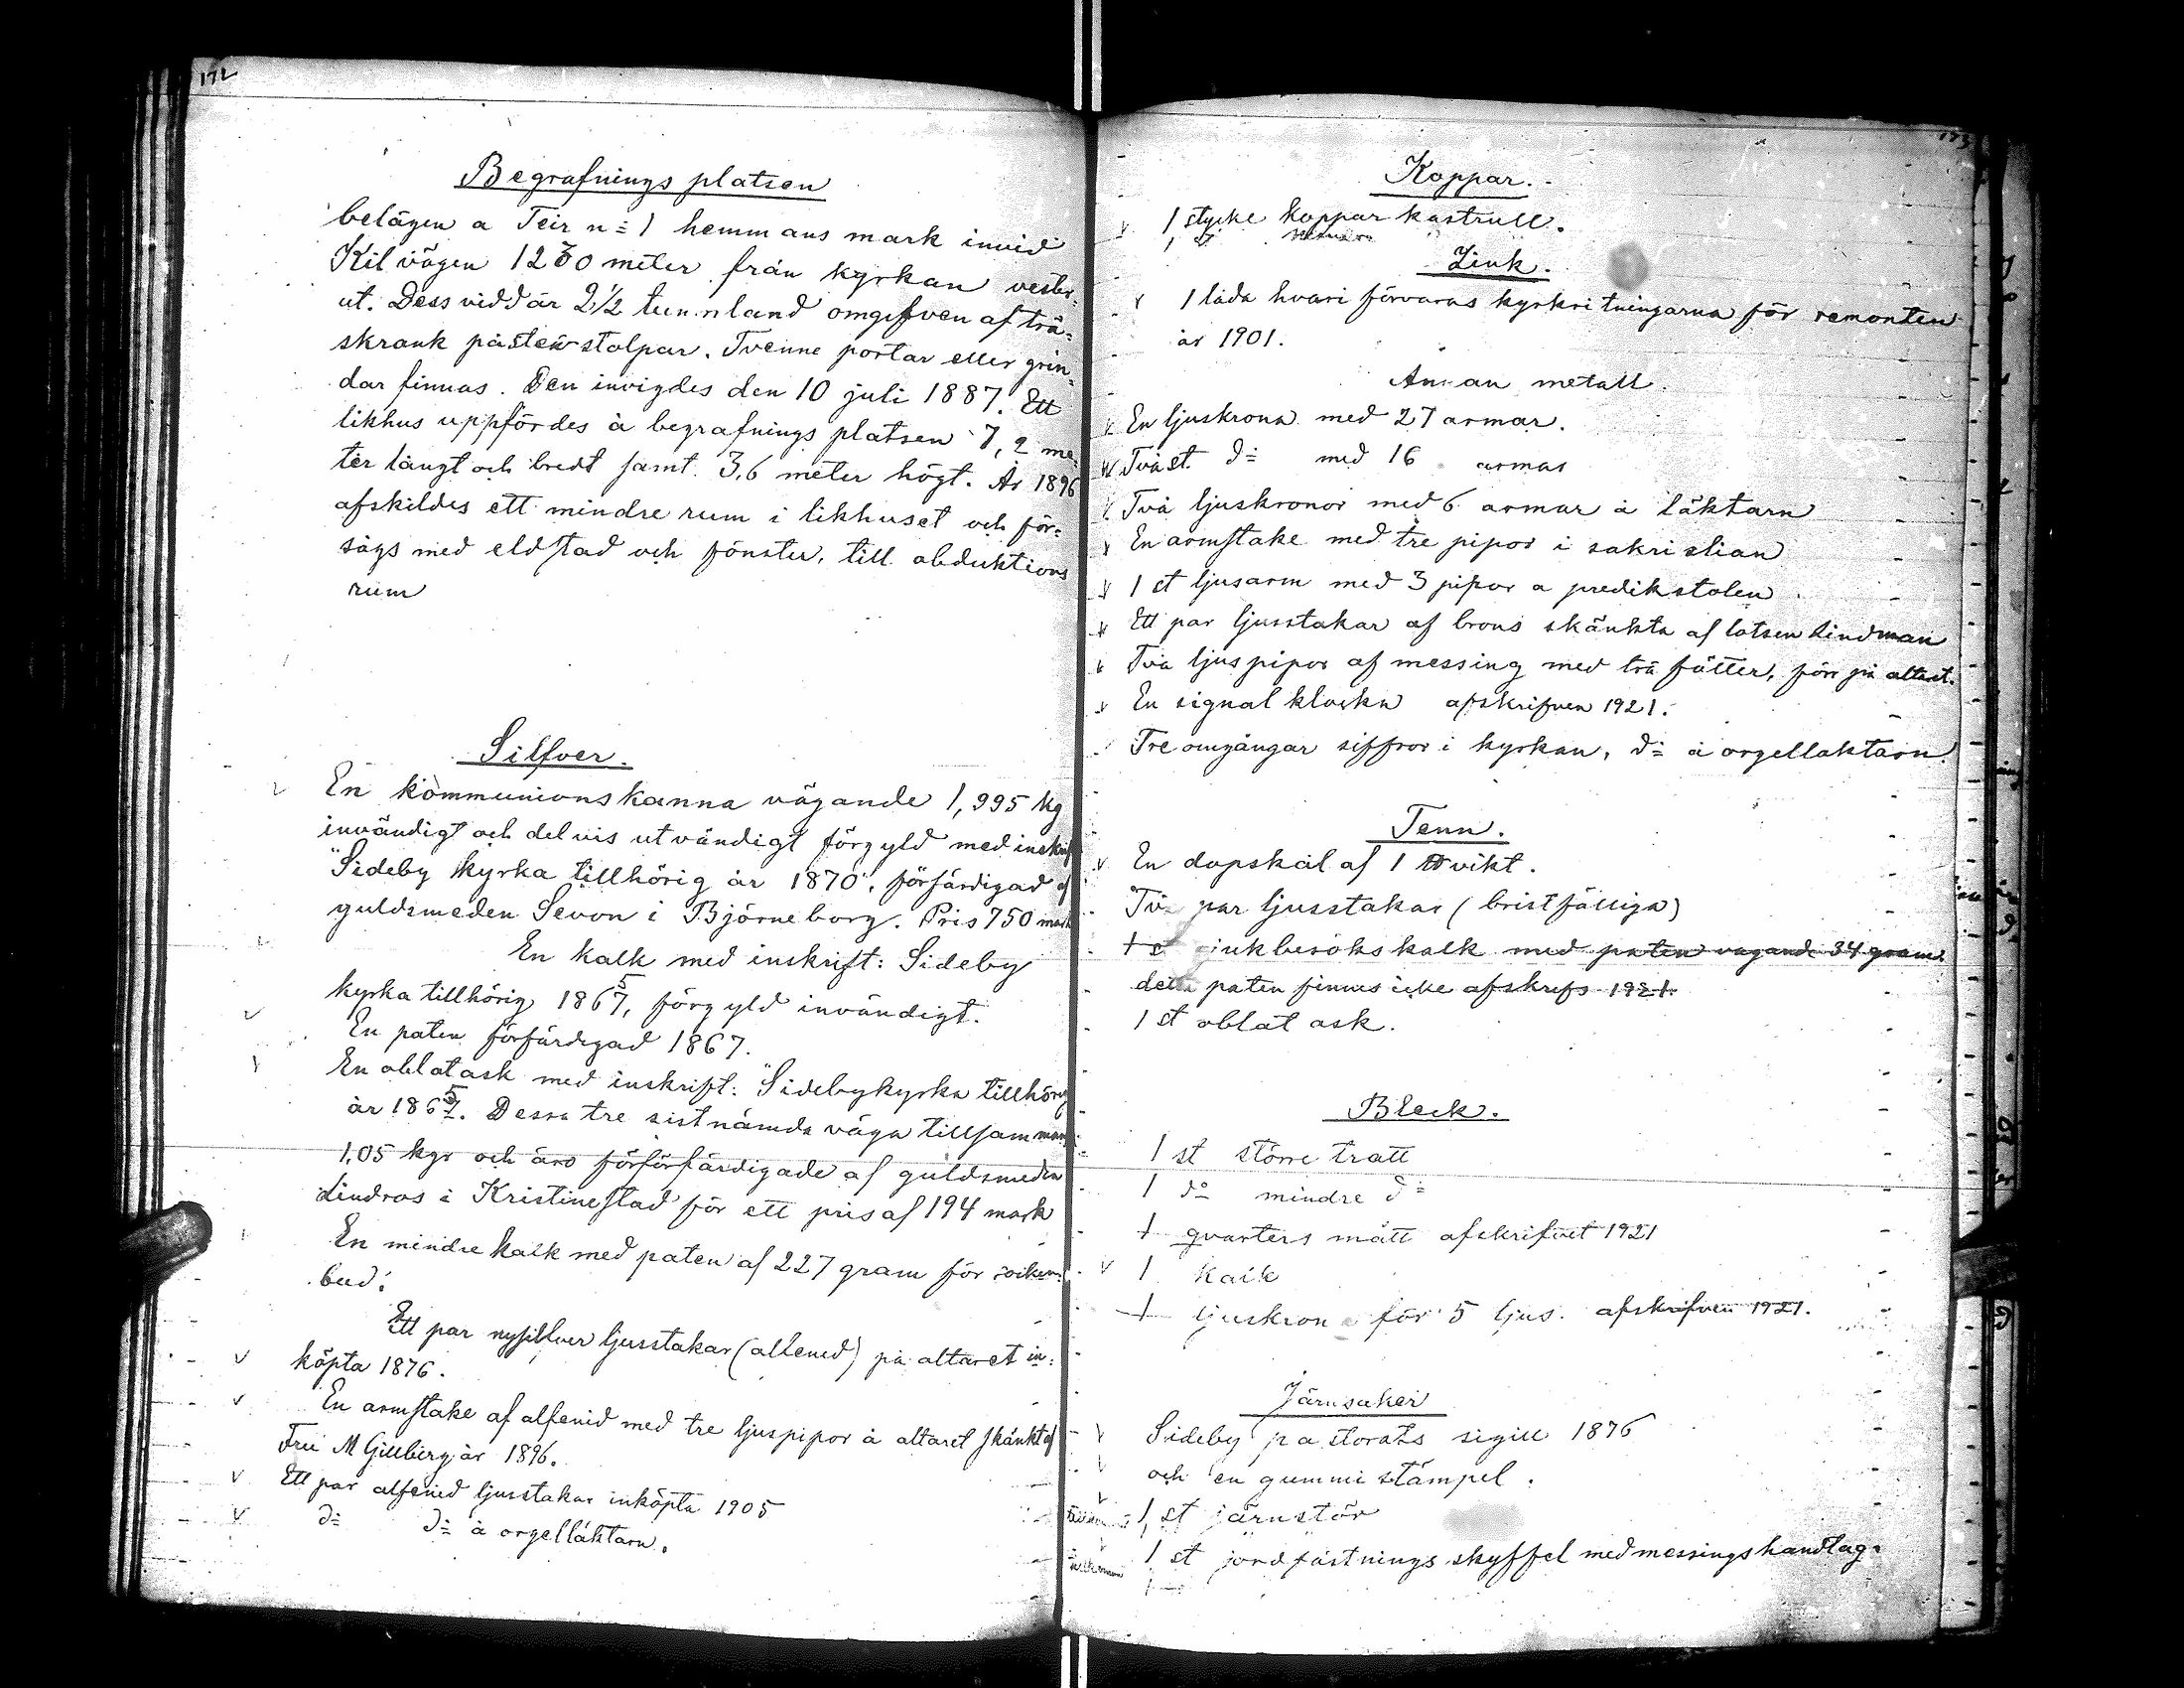 172
Begrafnings platsen
belägen a Teir n= 1 hemmans mark invid
Kilvägen 1230 meter från kyrkan vester=
ut. Dess vidd är 2 1/2 tunnland omgifven af trä=
skrank på sten stolpar. Tvenne portar eller grin=
dar finnas. Den invigdes den 10 juli 1887. Ett
likhus uppfördes å begrafnings platsen 7,2 me=
ter långt och bredt samt 3,6 meter högt. År 1896
afskildes ett mindre rum i likhuset och för=
sågs med eldstad och fönster, till abduktions
rum
Silfver.
En kommunionskanna vägande 1,995 kg
invändigt och delvis utvändigt förgyld med inskrift
"Sideby kyrka tillhörig år 1870", förfärdigad af
guldsmeden Sevon i Björneborg. Pris 750 mark
En kalk med inskrift: Sideby
kyrka tillhörig 1867, förgyld invändigt.
En paten förfärdigad 1867.
En oblatask med inskrift: "Sidebykyrka tillhörig
år 1867. Dessa tre sistnämda väga tillsammans
1,05 kgr och äro förförfärdigade af guldsmeden
Lindros i Kristinestad för ett pris af 194 mark
En mindre kalk med paten af 227 gram för
bud.
Ett par nysilfver ljusstakar (alfenid) på altaret in=
köpta 1876.
En armstake af alfenid med tre ljuspipor å altaret skänkt af
Fru M Gillberg år 1896.
Ett par alfenid ljusstakar inköpta 1905
d= d= å orgelläktarn.
173
Koppar.
1 stycke koppar kastrull.
1 d
Zink.
1 låda hvari förvaras kyrkritningarna för remonten
år 1901.
Annan metall.
En ljuskrona med 27 armar.
Två st. d= med 16 armar
Två ljuskronor med 6 armar å läktarn
En armstake med tre pipor i sakristian
1 st ljusarm med 3 pipor a predikstolen
Ett par ljusstakar af brons skänkta af lotsen Lindman
Två ljuspipor af messing med trä fötter, förr på altaret.
En signal klocka afskrifven 1921.
Tre omgångar siffror i kyrkan, d= å orgellaktarn.
Tenn.
En dopskål af 1 ℔ vikt.
Två par ljusstakar (bristfälliga)
1 st sjukbesökskalk med paten vagande 34 gram.
detta paten finnes icke afskrifs 1921.
1 st oblat ask.
Bleck.
1 st större tratt
1 do mindre d=
1 qvarters mått afskrifvet 1921
1 kalk
1 ljuskrona för 5 ljus. afskrifven 1921.
Järnsaker
Sideby pastorats sigill 1876
och en gummi stämpel.
1 st järnstör
1 st jordfästnings skyffel med messings handtag.